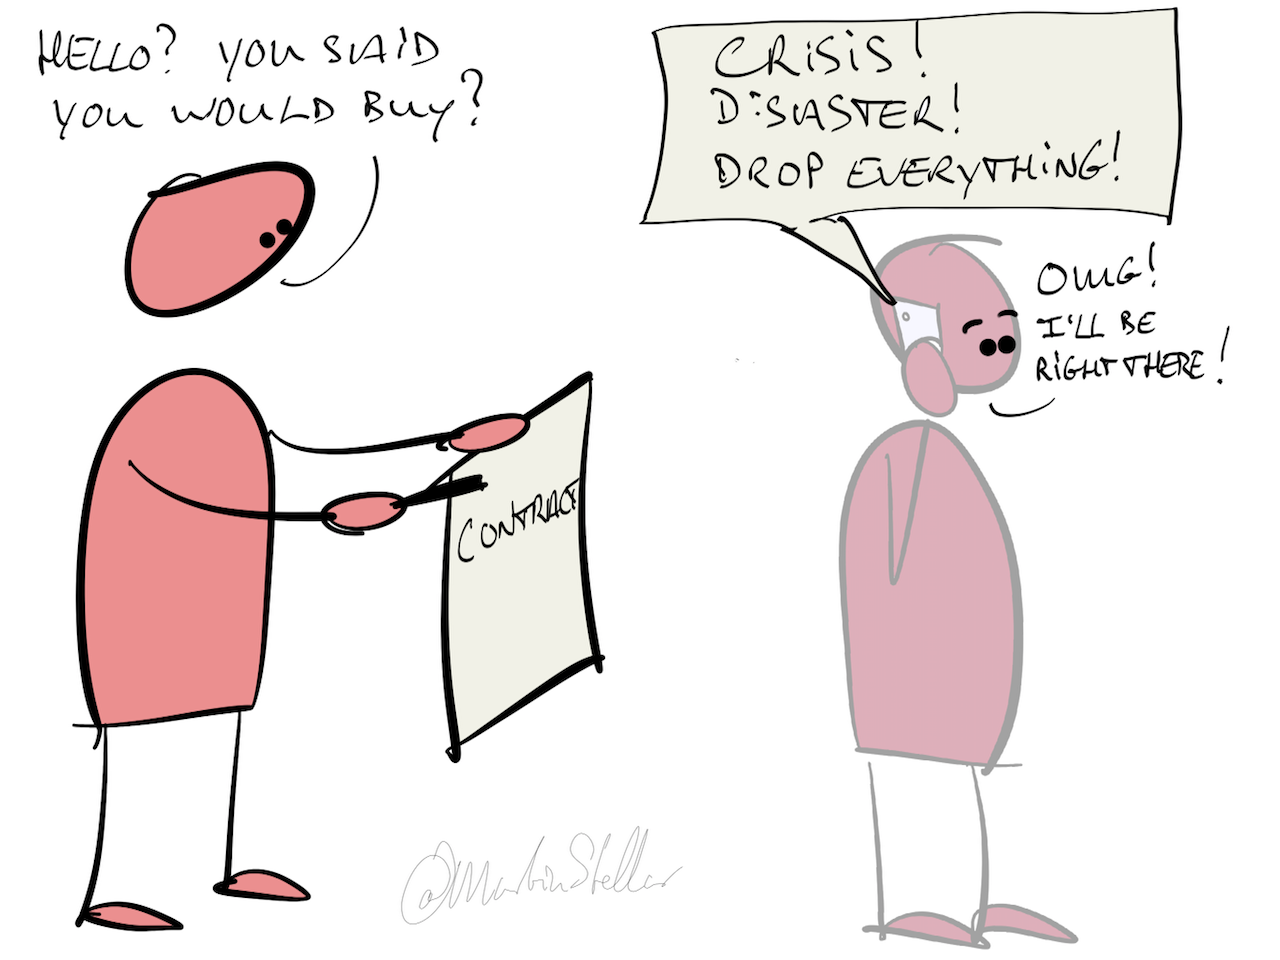 HELLO? YOU SAID
YOU WOULD BUY?
CRISIS!
DISASTER!
DROP EVERYTHING!
OMG!
I'LL BE
RIGHT THERE!
CONTRACT
@MartinStellar